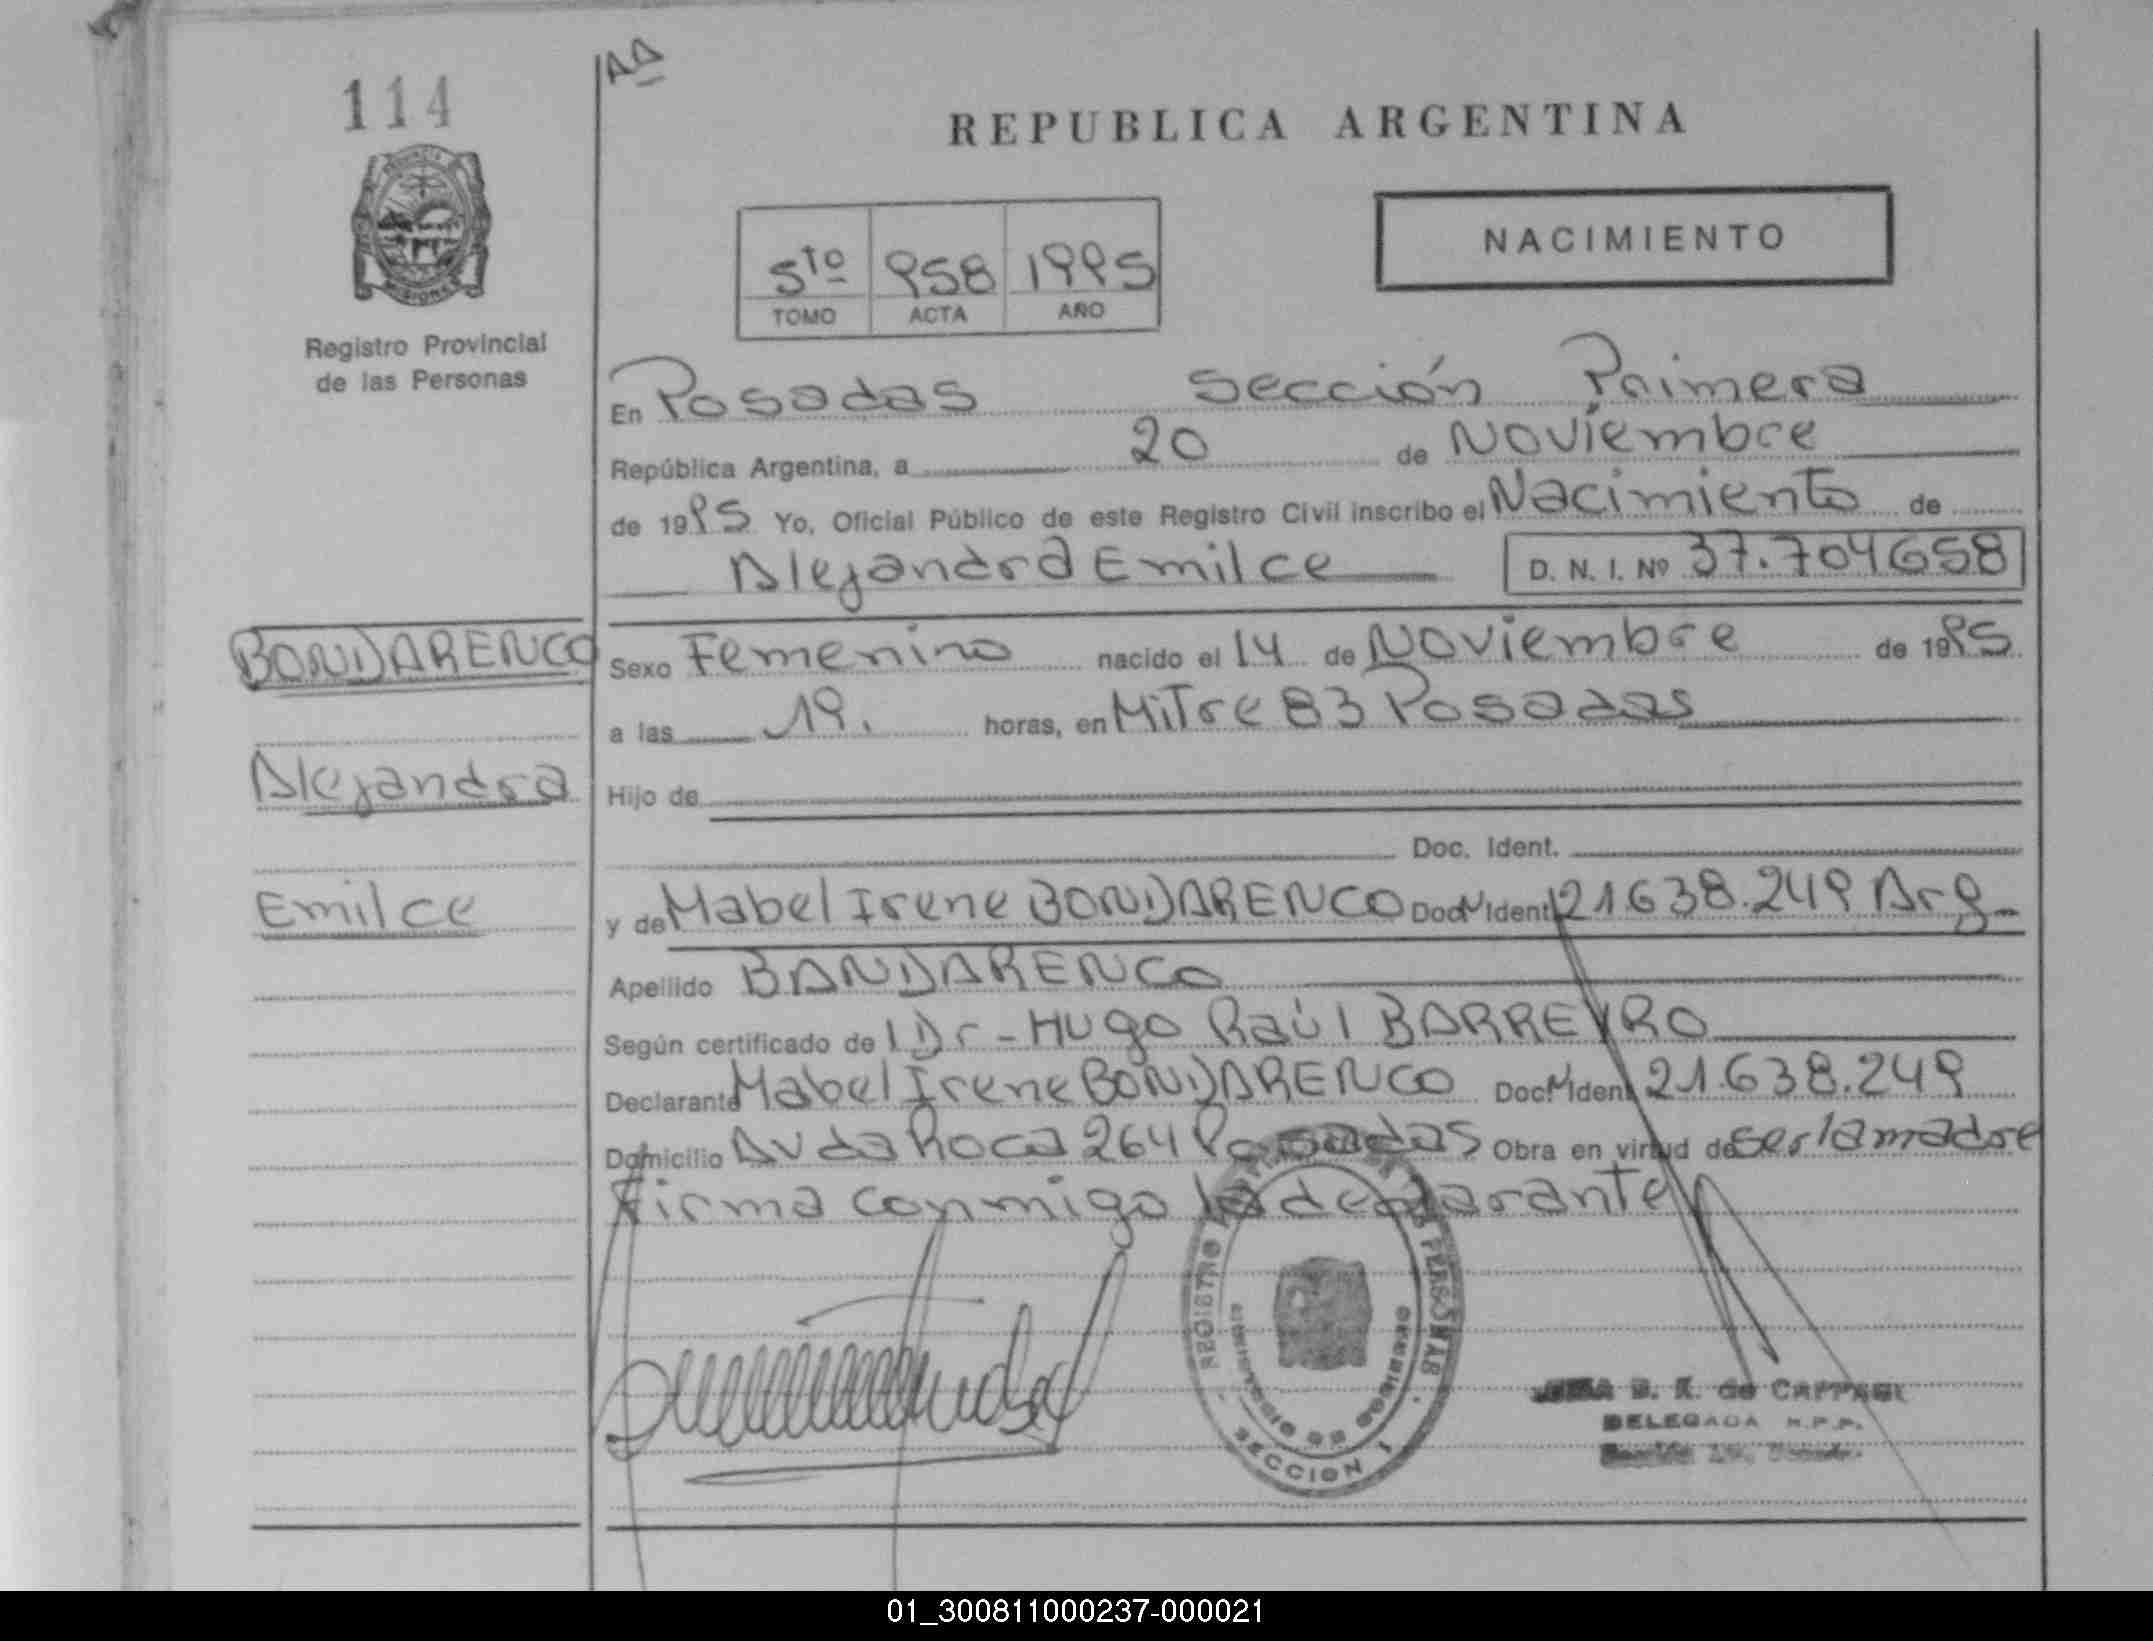 114
AA
REPUBLICA ARGENTINA
MISIONES
Registro Provincial
de las Personas
5to 958 1995
TOMO ACTA AÑO
NACIMIENTO
En Posadas Sección Primera
República Argentina, a 20 de Noviembre
de 1995 Yo, Oficial Público de este Registro Civil inscribo el Nacimiento de
Alejandra Emilce D. N. I. Nº 37.704658
BONDARENCO
Alejandra
Emilce
Sexo Femenino nacido el 14 de Noviembre de 1995
a las 19. horas, en Mitre 83 Posadas
Hijo de
Doc. Ident.
y de Mabel Irene BONDARENCO Doc. Ident. 21638.249 Arg
Apellido BANDARENCO
Según certificado de l Dr - Hugo Raúl BARREYRO
Declarante Mabel Irene BONDARENCO Doc. Ident. 21.638.249
Domicilio Avda Roca 264 Posadas Obra en virtud de ser la madre
Firma conmigo la declarante
REGISTRO PERSONAS
SECCION 1
B. de CAPPAGI
DELEGADA R.P.P.
01_300811000237-000021